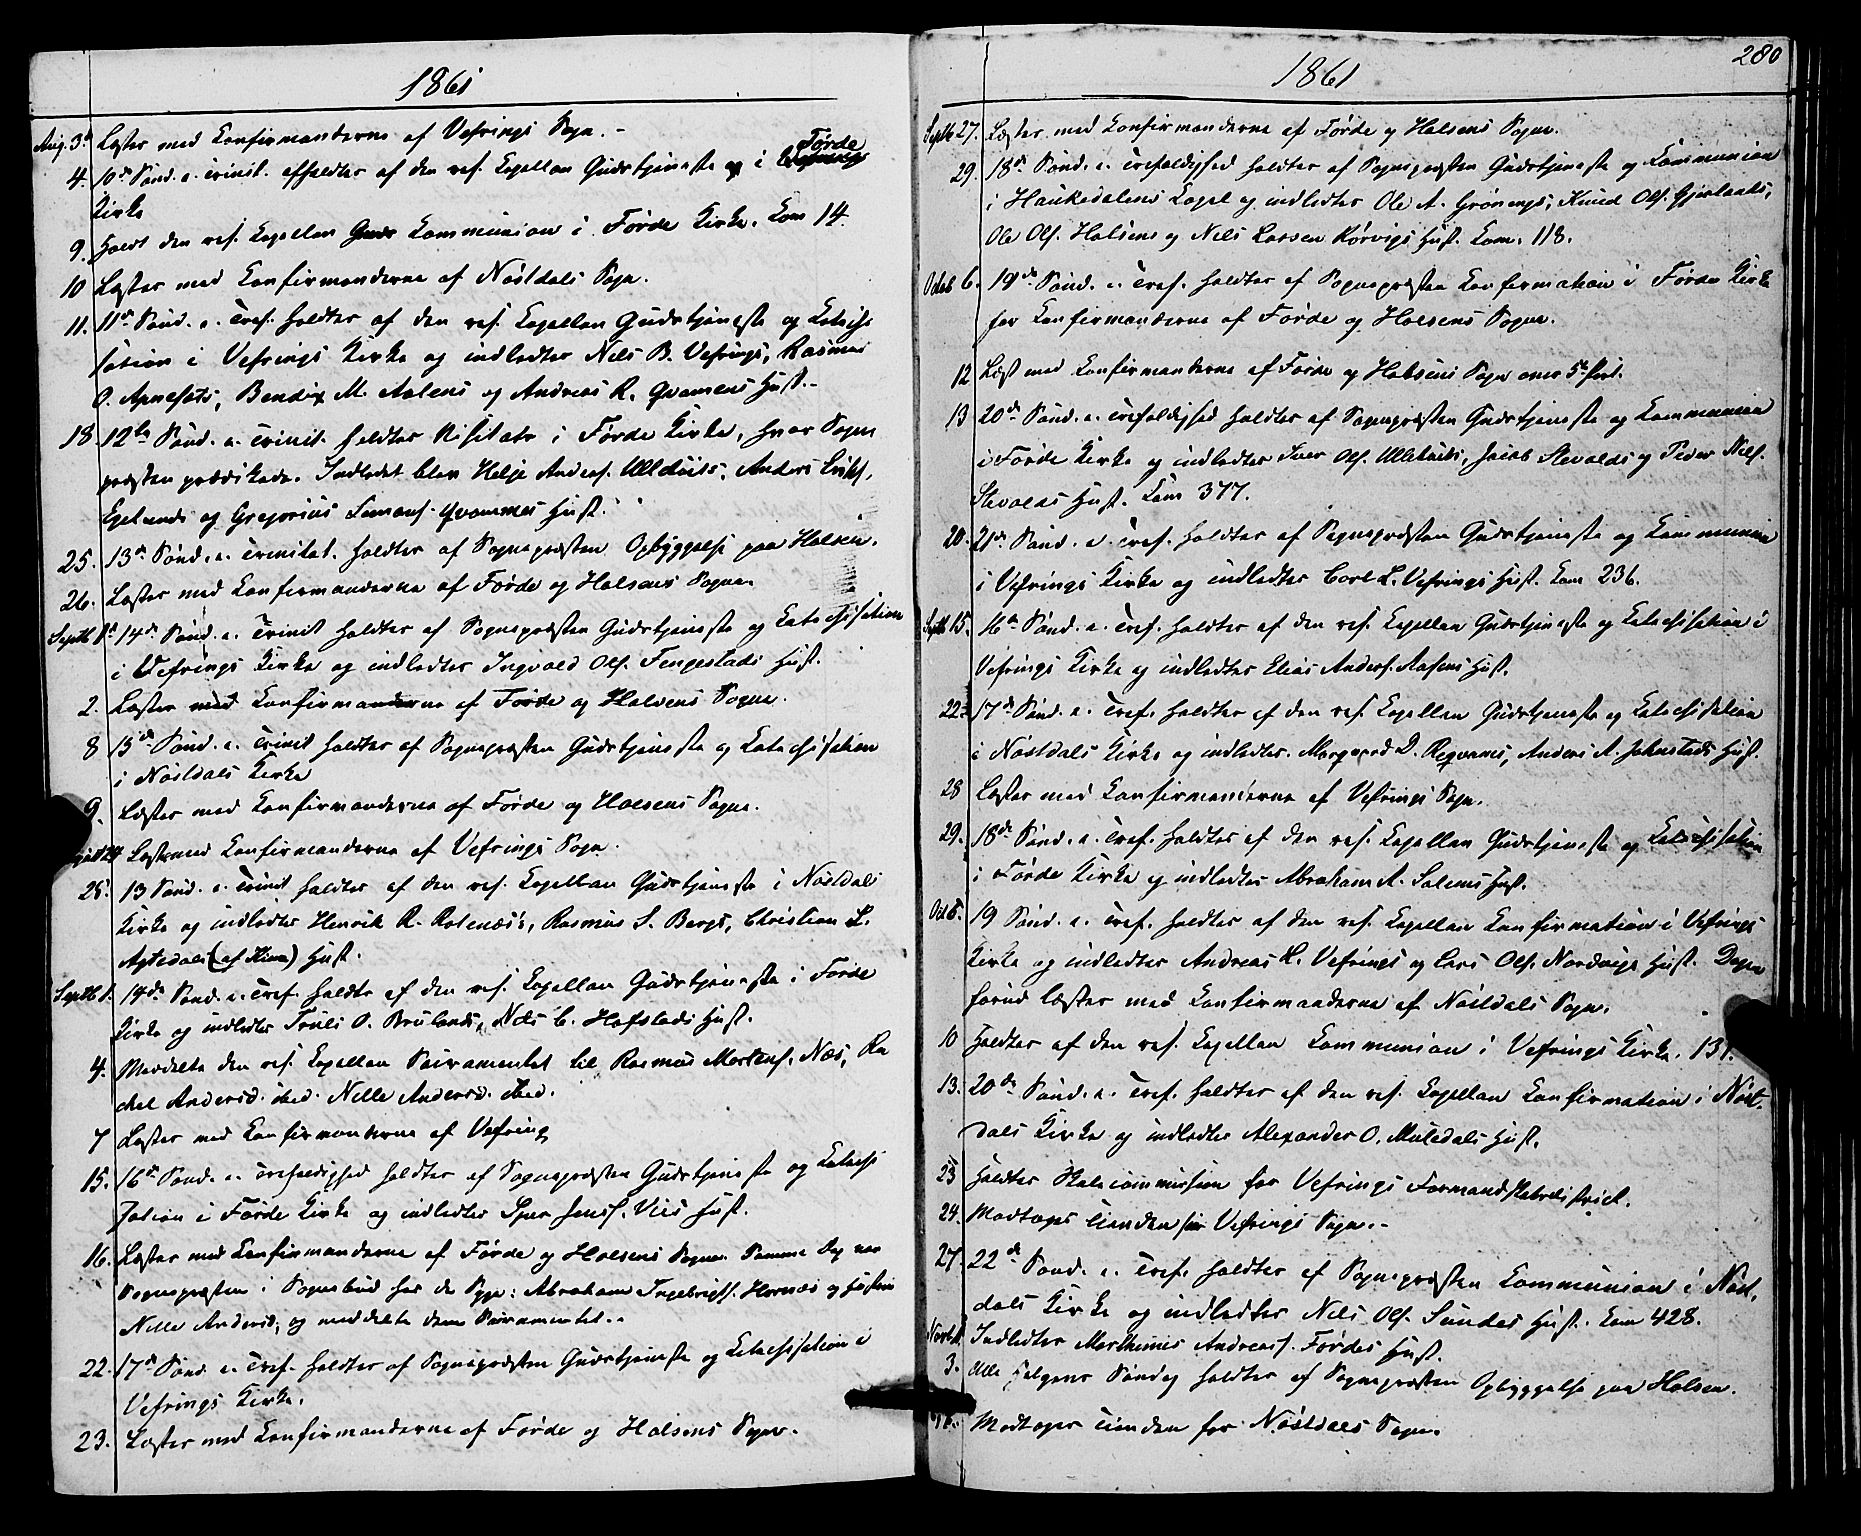 1861
Aug. 3d Læstes med Konfirmanderne af Vefrings Sogn. -
4. 10de Sønd. e. Trinit. afholdtes af den res. Kapellan Gudstjeneste og i Førde
Kirke
9. Holdt den res. Kapellan Communion i Førde Kirke. Kom 14.
10 Læstes med Konfirmanderne af Nøstdals Sogn.
11. 11te Sønd. e. Tref. holdtes af den res. Kapellan Gudstjeneste og Katechi
sation i Vefrings Kirke og indledtes Nels B. Vefrings, Rasmus
O. Apnesets, Bendix M. Aalens og Andreas R. Qvamens Hust. -
18 12te Sønd. e. Trinit. holdtes Visitats i Førde Kirke, hvor Sogne
præsten prædikede. Indledet blev Helje Anders. Ulltveits, Anders Eriks.
Egelands og Gregorius Simons. Qvammes Hust.
25. 13de Sønd. e. Trinitat. holdtes af Sognepræsten Opbyggelse paa Holsen.
26. Læstes med Konfirmanderne af Førde og Holsens Sogne.
Septb 1st 14de Sønd. e. Trinit holdtes af Sognepræsten Gudstjeneste og Katechisation
i Vefrings Kirke og indledtes Ingvald Ols. Fengestads Hust.
2. Læstes med Konfirmanderne af Førde og Holsens Sogne.
8 15de Sønd. e. Trinit holdtes af Sognepræsten Gudstjeneste og Katechisation
i Nøstdals Kirke
9. Læstes med Konfirmanderne af Førde og Holsens Sogne.
24 Læstes med Konfirmanderne af Vefrings Sogn.
25. 13 Sønd. e. Trinit holdtes af den res. Kapellan Gudstjeneste i Nøstdals
Kirke og indledtes Henrik R. Rotenæs's, Rasmus S. Bergs, Christian L.
(af Kinn) Hust.
Septb 1. 14de Sønd. e. Tref. holdts af den res. Kapellan Gudstjeneste i Førde
Kirke og indledtes Truls O. Brulands, Nels C. Hafstads Hust.
4. Meddelte den res. Kapellan Sacramentet til Rasmus Mortens. Næs, Ra
chel Andersd. ibed. Nille Andersd. ibed.
7 Læstes med Konfirmanderne af Vefring
15. 16de Sønd. e. Trefoldighed holdtes af Sognepræsten Gudstjeneste og Katechi
sation i Førde Kirke og indledtes Sjur Jens. Vies Hust.
16. Læstes med Konfirmanderne af Førde og Holsens Sogne. Samme Dag var
Sognepræsten i Sognebud hos de Syge: Abraham Ingebrigts. Hornæs og Hustru
Nille Andersd., og meddelte dem Sacramentet. -
22. 17de Sønd. e. Tref. holdtes af Sognepræsten Gudstjeneste og Katechisation i
Vefrings Kirke.
23. Læstes med Konfirmanderne af Førde og Holsens Sogne.
280
1861
Septb 27. Læstes med Konfirmanderne af Førde og Holsens Sogne.
29. 18de Sønd. e. Trefoldighed holdtes af Sognepræsten Gudstjeneste og Kommunion
i Haukedalens Kapel og indledtes Ole A. Grønengs, Knud Ols. Gjerlands,
Ole Ols. Holsens og Nils Larsen Rørvigs Hust. Kom. 118.
Octob 6. 19de Sønd. e. Tref. holdtes af Sognepræsten Konfirmation i Førde Kirke
for Konfirmanderne af Førde og Holsens Sogne.
12 Læst med Konfirmanderne af Førde og Holsens Sogn over 5te Part.
13 20de Sønd. e. Trefoldighed holdtes af Sognepræsten Gudstjeneste og Kommunion
i Førde Kirke og indledtes Iver Ols. Ulltveits, Jacob Slevolds og Peder Nils.
Slevolds Hust. Kom 377.
20. 21de Sønd. e. Tref. holdtes af Sognepræsten Gudstjeneste og Kommunion
i Vefrings Kirke og indledtes Carl L. Vefrings Hust. Kom 236.
Septb 15. 16de Sønd. e. Tref. holdtes af den res. Kapellan Gudstjeneste og Katechisation i
Vefrings Kirke og indledtes Elias Anders. Aasens Hust.
22. 17de Sønd. e. Tref. holdtes af den res. Kapellan Gudstjeneste og Katechisation
i Nøstdals Kirke og indledtes D. Anders A. Hust.
28 Læstes med Konfirmanderne af Vefrings Sogn.
29. 18de Sønd. e. Tref. holdtes af den res. Kapellan Gudstjeneste og Katechisation
i Førde Kirke og indledtes Abraham A. Solems Hust.
Oct 6. 19 Sønd. e. Tref. holdtes af den res. Kapellan Konfirmation i Vefrings
Kirke og indledtes Andreas H. Vefrings og Lars Ols. Nordvigs Hust. Dagen
forud læstes med Konfirmanderne af Nøstdals Sogn.
10 Holdtes af den res. Kapellan Kommunion i Vefrings Kirke.
13. 20de Sønd. e. Tref. holdtes af den res. Kapellan Konfirmation i Nøst-
dals Kirke og indledtes Alexander O. Muledals Hust.
23 Holdtes Skolecommission for Vefrings Formandskabsdistrict.
24. Modtoges Tienden for Vefrings Sogn. -
27. 22de Sønd. e. Tref. holdtes af Sognepræsten Communion i Nøst-
dals Kirke og indledtes Nels Ols. Sundes Hust. Kom 428.
Novb 1. Indledtes Marthinus Andreas. Førdes Hust.
3. Alle Helgens Søndag holdtes af Sognepræsten Opbyggelse paa Holsen.
Modtoges Tienden for Nøstdals Sogn.